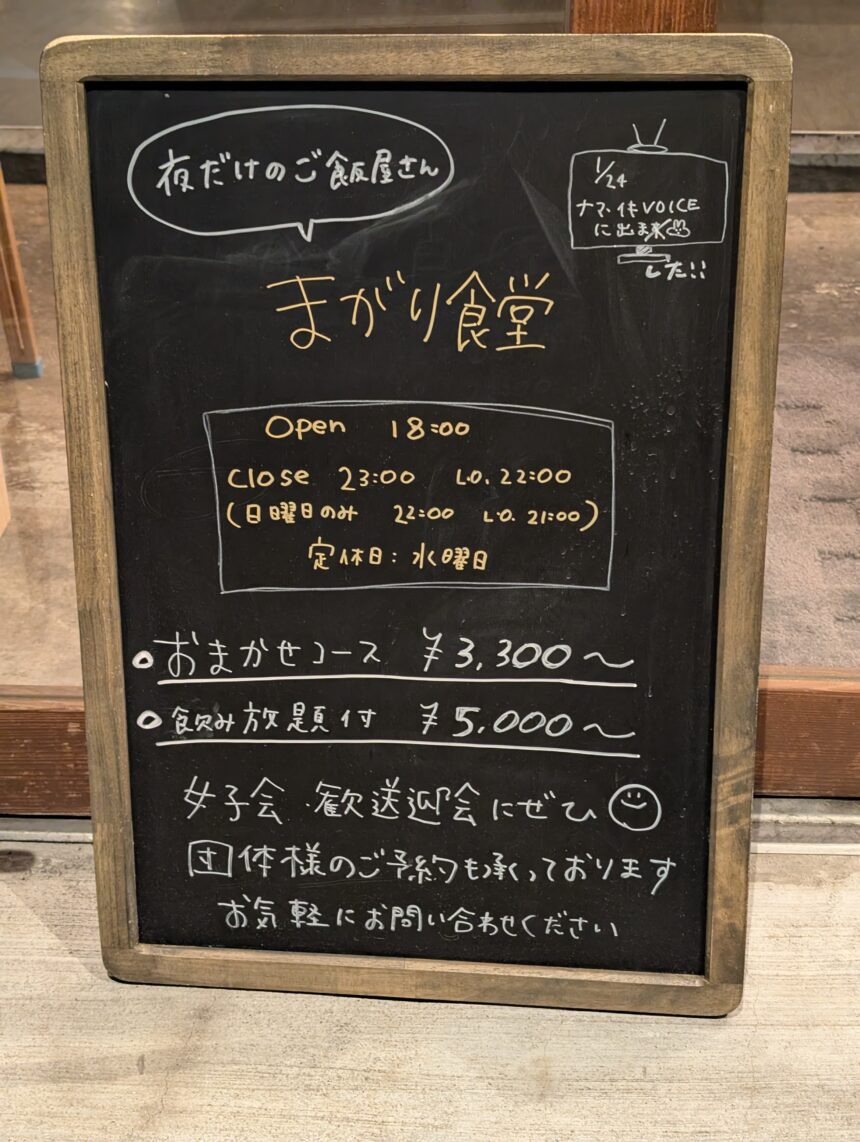 夜だけのご飯屋さん
1/24
ナマ・イキVOICE
に出ま
した!!
まがり食堂
Open 18:00
Close 23:00 L.O. 22:00
(日曜日のみ 22:00 L.O. 21:00)
定休日: 水曜日
おまかせコース ¥3,300〜
飲み放題付 ¥5.000〜
女子会・歓送迎会にぜひ
団体様のご予約も承っております
お気軽にお問い合わせください